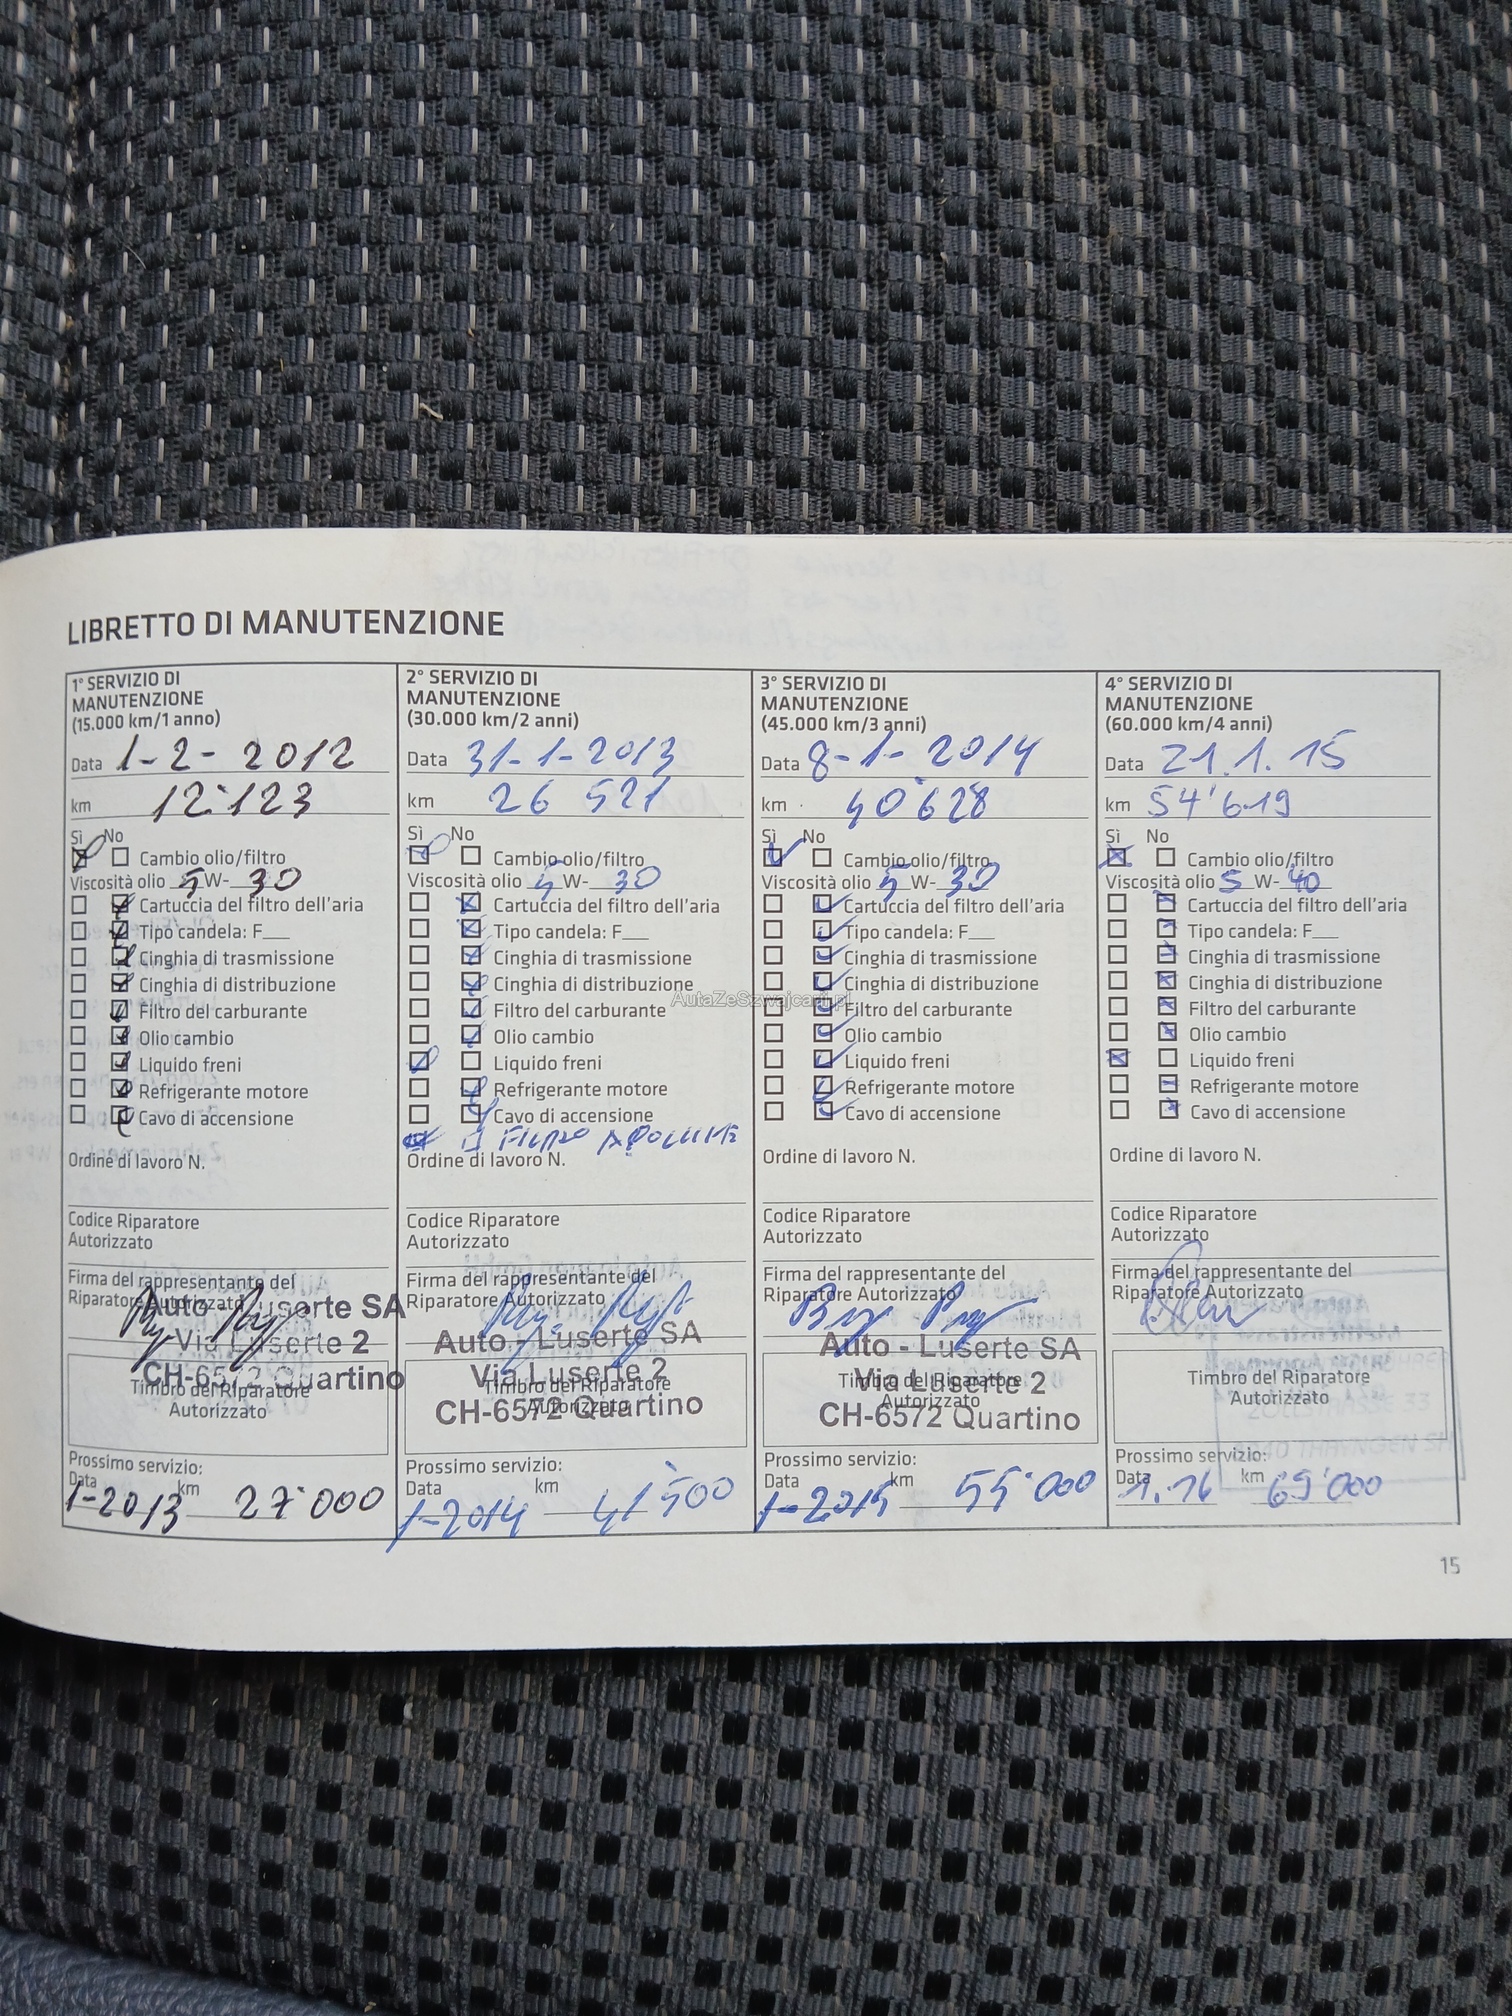 LIBRETTO DI MANUTENZIONE
1° SERVIZIO DI
MANUTENZIONE
(15.000 km/1 anno)
Data 1-2-2012
km 12'123
Sì No
Cambio olio/filtro
Viscosità olio 5 W- 30
Cartuccia del filtro dell'aria
Tipo candela: F___
Cinghia di trasmissione
Cinghia di distribuzione
Filtro del carburante
Olio cambio
Liquido freni
Refrigerante motore
Cavo di accensione
Ordine di lavoro N.
Codice Riparatore
Autorizzato
Firma del rappresentante del
Riparatore Autorizzato
Auto - Luserte SA
Via Luserte 2
CH-6572 Quartino
Timbro del Riparatore
Autorizzato
Prossimo servizio:
Data km
1-2013 27'000
2° SERVIZIO DI
MANUTENZIONE
(30.000 km/2 anni)
Data 31-1-2013
km 26 521
Sì No
Cambio olio/filtro
Viscosità olio 5 W- 30
Cartuccia del filtro dell'aria
Tipo candela: F___
Cinghia di trasmissione
Cinghia di distribuzione
Filtro del carburante
Olio cambio
Liquido freni
Refrigerante motore
Cavo di accensione
Ordine di lavoro N.
Codice Riparatore
Autorizzato
Firma del rappresentante del
Riparatore Autorizzato
Auto - Luserte SA
Via Luserte 2
CH-6572 Quartino
Timbro del Riparatore
Autorizzato
Prossimo servizio:
Data km
1-2014 41'500
3° SERVIZIO DI
MANUTENZIONE
(45.000 km/3 anni)
Data 8-1-2014
km 40'628
Sì No
Cambio olio/filtro
Viscosità olio 5 W- 30
Cartuccia del filtro dell'aria
Tipo candela: F___
Cinghia di trasmissione
Cinghia di distribuzione
Filtro del carburante
Olio cambio
Liquido freni
Refrigerante motore
Cavo di accensione
Ordine di lavoro N.
Codice Riparatore
Autorizzato
Firma del rappresentante del
Riparatore Autorizzato
Auto - Luserte SA
Via Luserte 2
CH-6572 Quartino
Timbro del Riparatore
Autorizzato
Prossimo servizio:
Data km
1-2015 55'000
4° SERVIZIO DI
MANUTENZIONE
(60.000 km/4 anni)
Data 21.1.15
km 54'619
Sì No
Cambio olio/filtro
Viscosità olio 5 W- 40
Cartuccia del filtro dell'aria
Tipo candela: F___
Cinghia di trasmissione
Cinghia di distribuzione
Filtro del carburante
Olio cambio
Liquido freni
Refrigerante motore
Cavo di accensione
Ordine di lavoro N.
Codice Riparatore
Autorizzato
Firma del rappresentante del
Riparatore Autorizzato
Timbro del Riparatore
Autorizzato
Prossimo servizio:
Data km
1.16 69'000
AutaZeSzwajcarii.pl
15